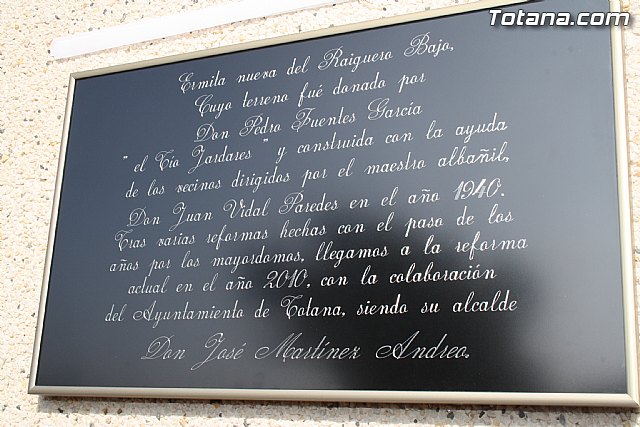 Totana.com
Ermita nueva del Raiguero Bajo,
Cuyo terreno fué donado por
Don Pedro Fuentes García
"el Tío Zardares" y construida con la ayuda
de los vecinos dirigidos por el maestro albañil,
Don Juan Vidal Paredes en el año 1940.
Tras varias reformas hechas con el paso de los
años por los mayordomos, llegamos a la reforma
actual en el año 2010, con la colaboración
del Ayuntamiento de Totana, siendo su alcalde
Don José Martínez Andreo.